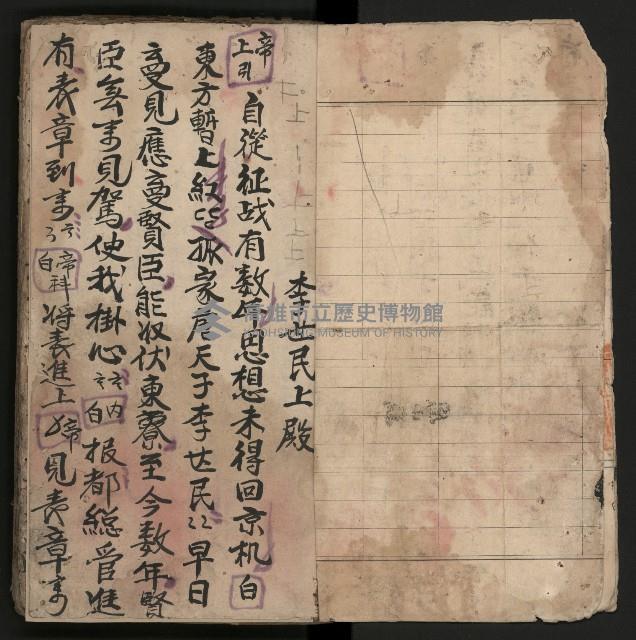 李世民上殿
帝上引 自從征战有数年思想未得回京机 白
東方暫上 孤家唐天子李世民 早日
㝱見應㝱賢臣能收伏東寮至今数年賢
臣無来見駕使我掛心 内白 报都総管進
有表章到来 帝科白 将表進上 帝 見表章来
高雄市立歷史博物館
KAOHSIUNG MUSEUM OF HISTORY